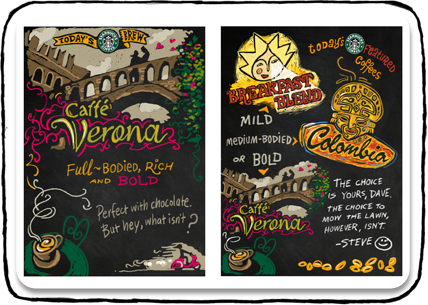 TODAY'S BREW
Caffé
Verona
FULL-BODIED, RICH
AND BOLD
Perfect with chocolate.
But hey, what isn't?
today's Featured
Coffees
BREAKFAST
BLEND
MILD
MEDIUM-BODIED
OR BOLD
Colombia
Caffé
Verona
THE CHOICE
IS YOURS, DAVE.
THE CHOICE TO
MOW THE LAWN,
HOWEVER, ISN'T.
-STEVE